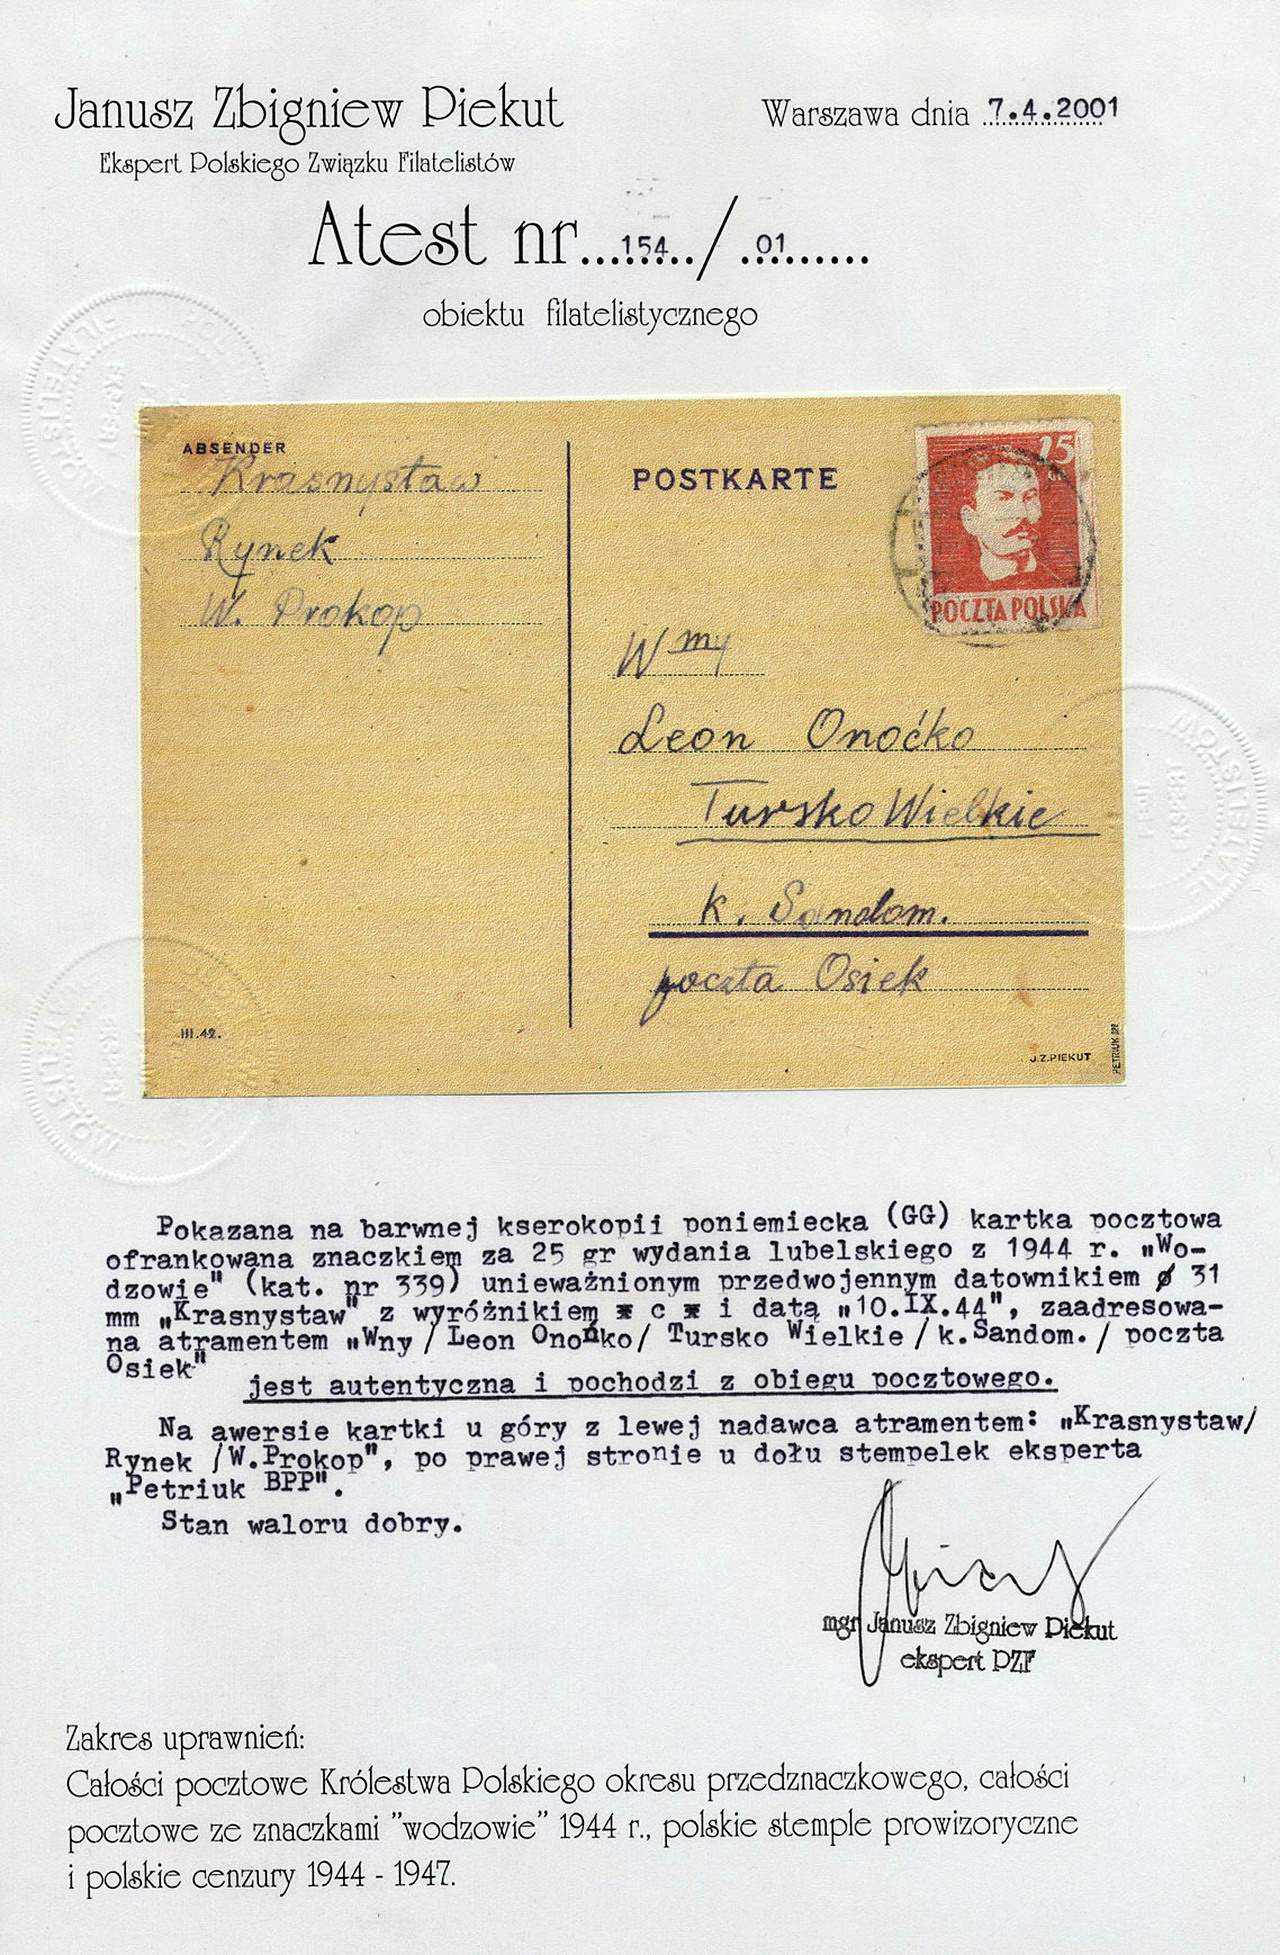 Janusz Zbigniew Piekut
Ekspert Polskiego Związku Filatelistów
Warszawa dnia 7.4.2001
Atest nr 154 / 01
obiektu filatelistycznego
ABSENDER
Krasnystaw
Rynek
W. Prokop
POSTKARTE
25
POCZTA POLSKA
Wmy
Leon Onoćko
Tursko Wielkie
k. Sandom.
poczta Osiek
III.42.
J.Z.PIEKUT
PETRIUK BPP
Pokazana na barwnej kserokopii poniemiecka (GG) kartka pocztowa
ofrankowana znaczkiem za 25 gr wydania lubelskiego z 1944 r. „Wo-
dzowie" (kat. nr 339) unieważnionym przedwojennym datownikiem ø 31
mm „Krasnystaw" z wyróżnikiem * c * i datą „10.IX.44", zaadresowa-
na atramentem „Wny / Leon Onońko/ Tursko Wielkie / k.Sandom. / poczta
Osiek"
jest autentyczna i pochodzi z obiegu pocztowego.
Na awersie kartki u góry z lewej nadawca atramentem: „Krasnystaw/
Rynek /W.Prokop", po prawej stronie u dołu stempelek eksperta
„Petriuk BPP".
Stan waloru dobry.
mgr Janusz Zbigniew Piekut
ekspert PZF
Zakres uprawnień:
Całości pocztowe Królestwa Polskiego okresu przedznaczkowego, całości
pocztowe ze znaczkami "wodzowie" 1944 r., polskie stemple prowizoryczne
i polskie cenzury 1944 - 1947.